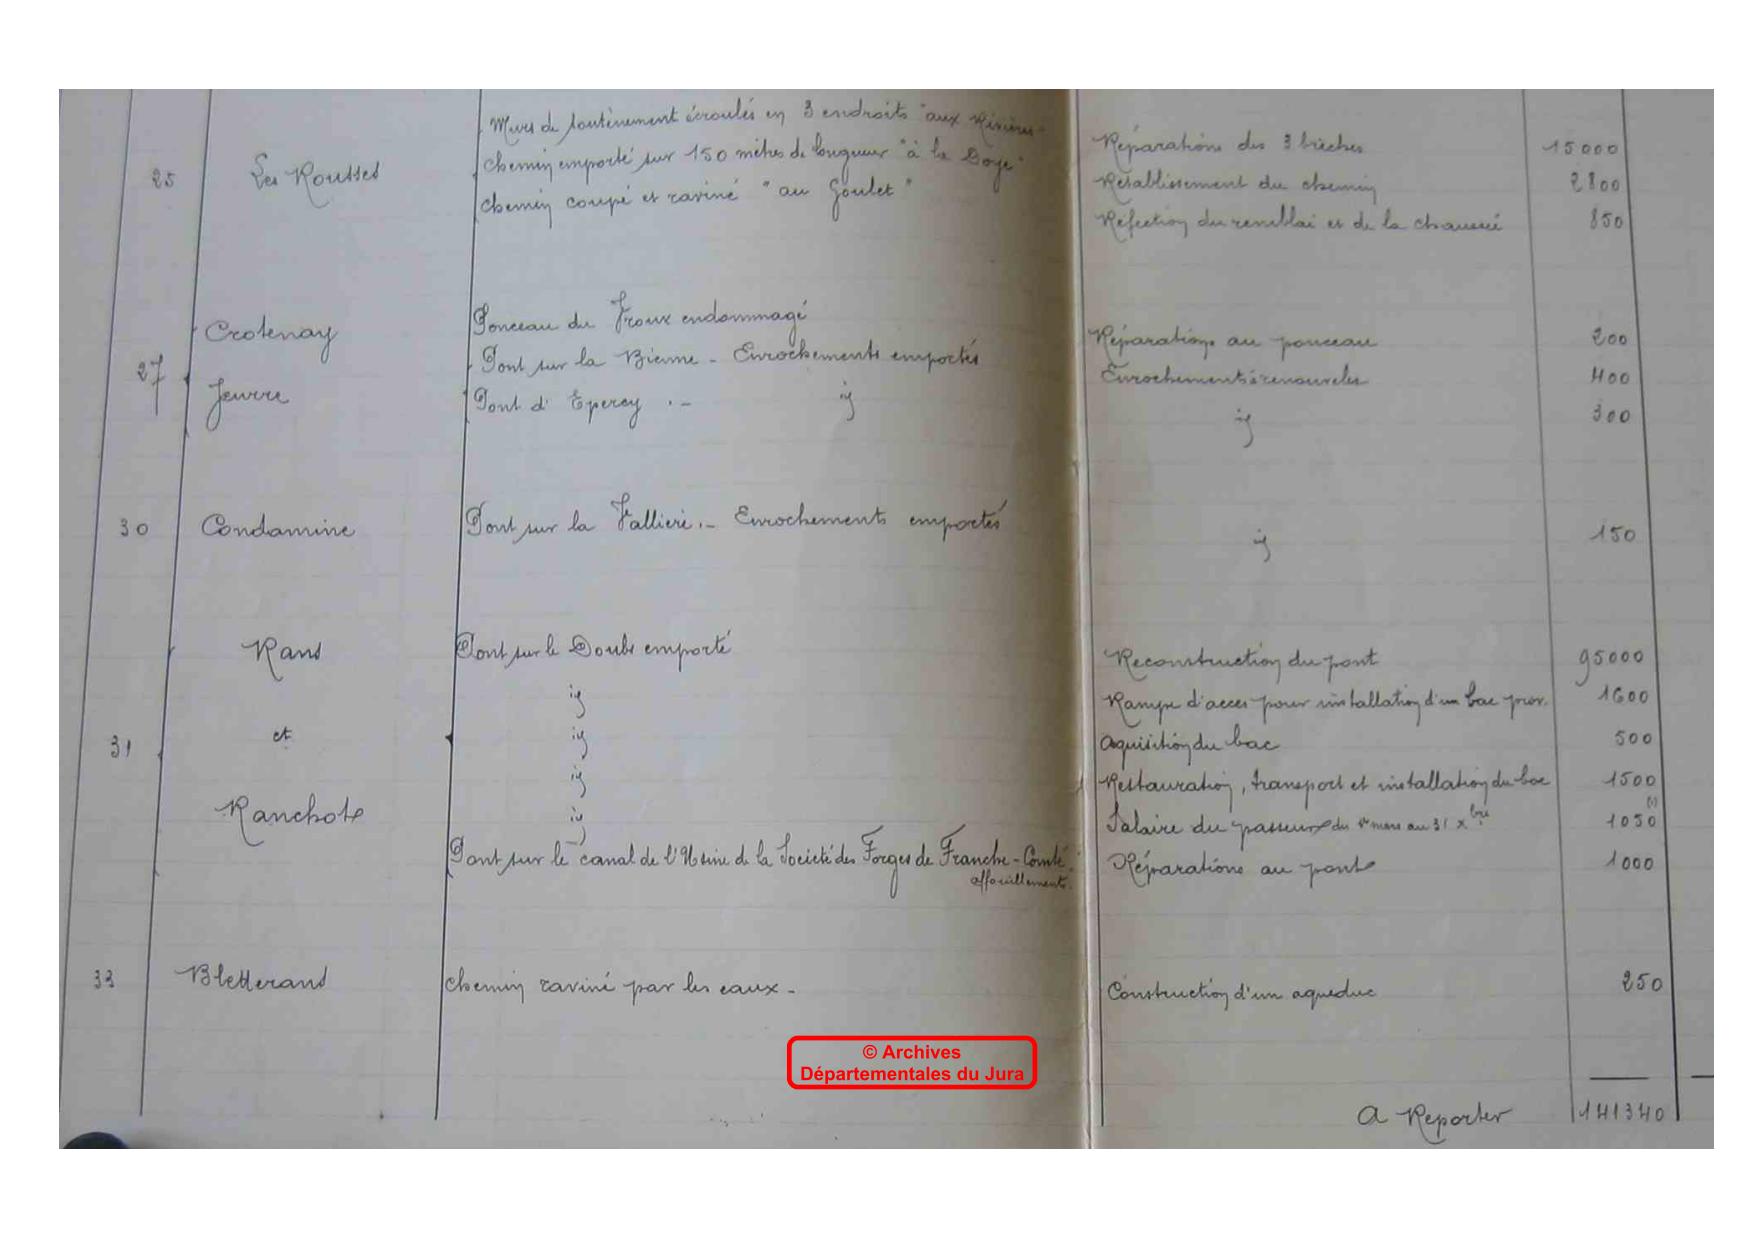 25 Les Rousses Murs de soutènement écroulés en 3 endroits "aux Rivières" Réparations des 3 brèches 15000
chemin emporté sur 150 mètres de longueur "à la Doye" Rétablissement du chemin 2800
chemin coupé et raviné "au Goulet" Réfection du remblai et de la chaussée 850
27 Crotenay Ponceau du endommagé Réparations au ponceau 200
Jeurre Pont sur la Bienne - Enrochements emportés Enrochements à renouveler 400
Pont d'Epercy .- id id 300
30 Condamine Pont sur la Vallière .- Enrochements emportés id 150
31 Rans Pont sur le Doubs emporté Reconstruction du pont 95000
id Rampe d'accès pour installation d'un bac prov. 1600
et id Aquisition du bac 500
id Restauration, transport et installation du bac 1500
Ranchot id Salaire du passeur du 1er mars au 31 Xbre 1050 (1)
Pont sur le canal de l'Usine de la Société des Forges de Franche-Comté Réparations au pont 1000
affouillements.
33 Bletterans chemin raviné par les eaux - Construction d'un aqueduc 250
© Archives
Départementales du Jura
A Reporter 141340